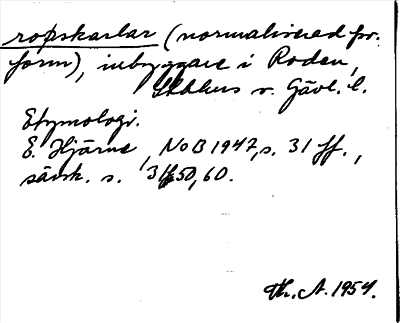 ropskarlar (normaliserad fsv.
form), inbyggare i Roden,
Sthlms o. Gävl. l.
Etymologi.
E. Hjärne, NoB 1947, s. 31 ff.,
särsk. s. 50, 60.
Th. A. 1954.